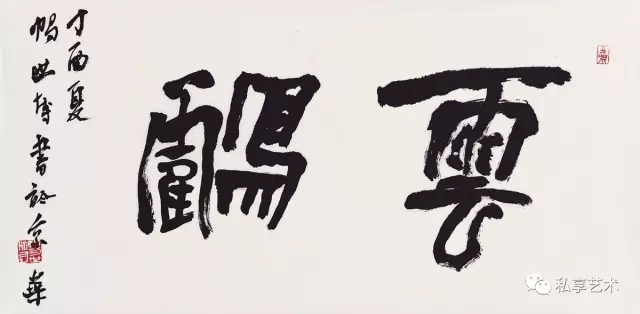 雲鸖
丁酉夏
世博書於京華
私享艺术